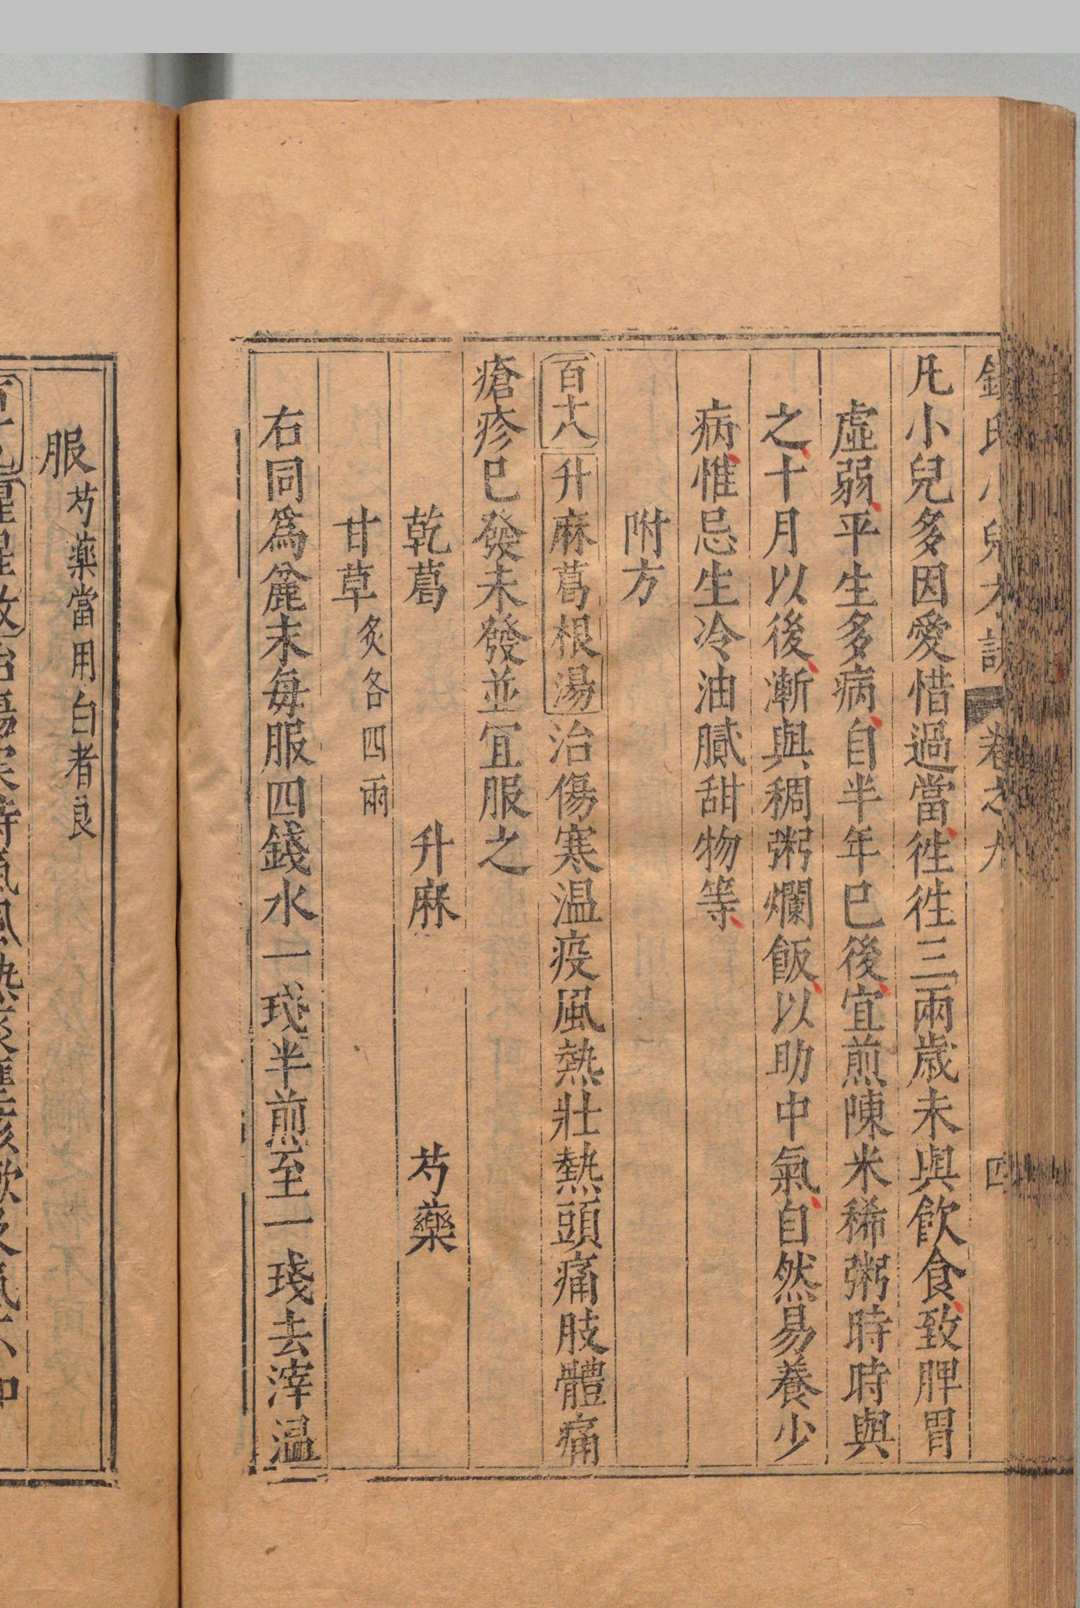 錢氏小兒方訣 卷之九 四
凡小兒多因愛惜過當徃徃三兩歲未與飲食致脾胃
虛弱平生多病自半年已後宜煎陳米稀粥時時與
之十月以後漸與稠粥爛飯以助中氣自然易養少
病惟忌生冷油膩甜物等
附方
百十八 升麻葛根湯 治傷寒温疫風熱壯熱頭痛肢體痛
瘡疹已發未發並宜服之
乾葛 升麻 芍藥
甘草炙各四兩
右同為麄末每服四錢水一琖半煎至一琖去滓温
服芍藥當用白者良